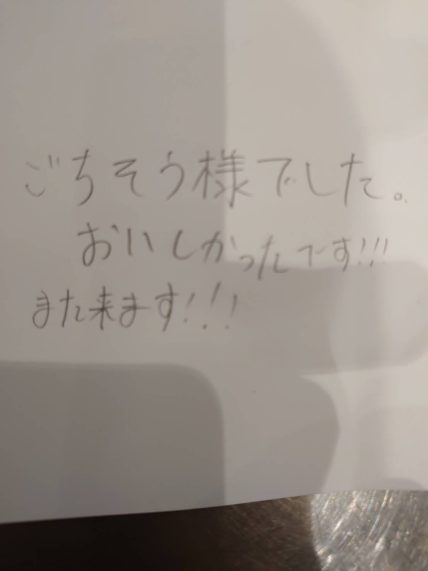 ごちそう様でした。
おいしかったです!!!
また来ます!!!